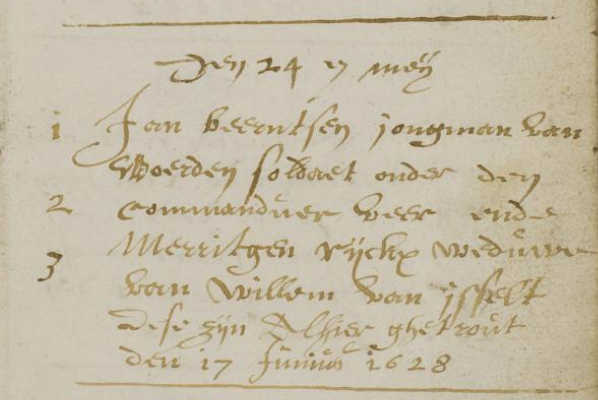 Den 24 n meÿ
1 Jan beerntsen jongman van
Woerden soldaet onder den
2 Commanduer veer ende
3 Merritgen Rÿckx weduwe
van Willem van jsselt
dese zÿn Alhier ghetrout
den 17 Junius 1628